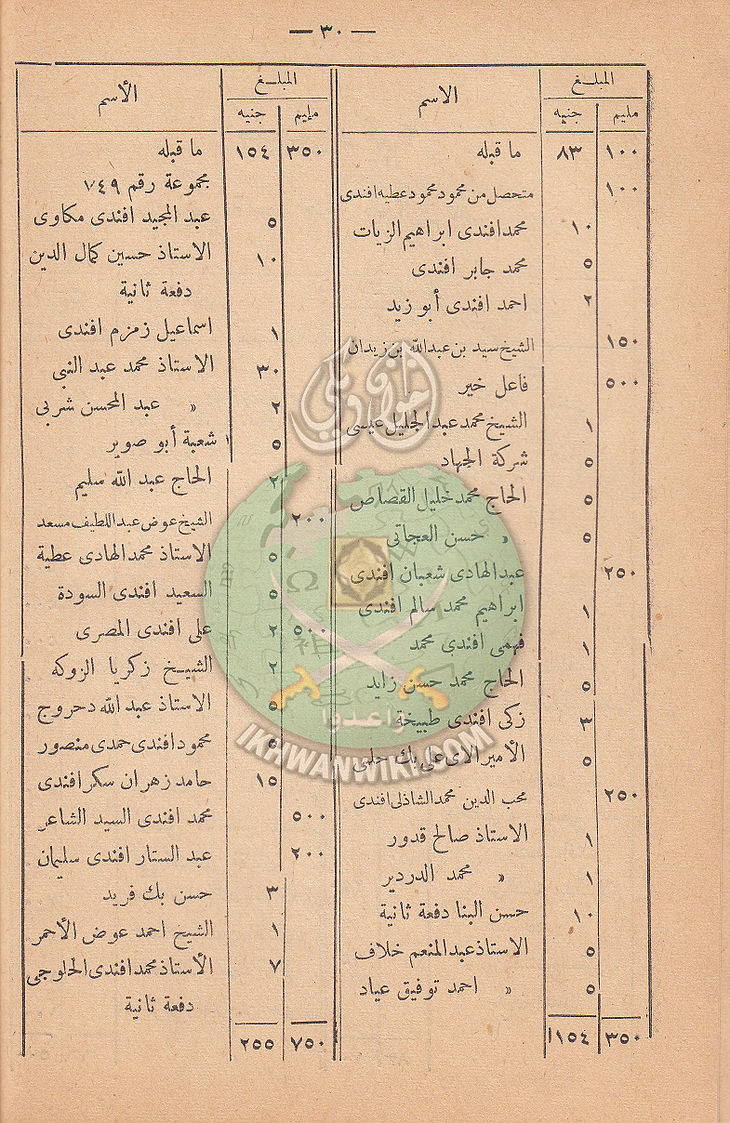 — ٣٠ —
المبلغ الاسم
مليم جنيه
١٠٠ ٨٣ ما قبله
١٠٠ متحصل من محمود محمود عطيه افندى
١٠ محمد افندى ابراهيم الزيات
٥ محمد جابر افندى
٢ احمد افندى أبو زيد
١٥٠ الشيخ سيد بن عبد الله بن زيدان
٥٠٠ فاعل خير
١ الشيخ محمد عبد الجليل عيسى
٥ شركة الجهاد
٥ الحاج محمد خليل القصاص
٥ » حسن العجاتى
٢٥٠ عبد الهادى شعبان افندى
١ ابراهيم محمد سالم افندى
١ فهمى افندى محمد
٥ الحاج محمد حسن زايد
٣ زكى افندى طبيخة
٥ الأمير الاى على بك حلمى
٢٥٠ محب الدين محمد الشاذلى افندى
١ الاستاذ صالح قدور
١ » محمد الدردير
١٠ حسن البنا دفعة ثانية
٥ الاستاذ عبد المنعم خلاف
٥ » احمد توفيق عياد
٣٥٠ ١٥٤
المبلغ الأسم
مليم جنيه
٣٥٠ ١٥٤ ما قبله
مجموعة رقم ١٧٤٩
٥ عبد المجيد افندى مكاوى
١٠ الاستاذ حسين كمال الدين
دفعة ثانية
١ اسماعيل زمزم افندى
٣٠ الاستاذ محمد عبد النبى
٢ » عبد المحسن شربى
٥ شعبة أبو صوير
٢ الحاج عبد الله سليم
٢٠٠ الشيخ عوض عبد اللطيف مسعد
٥ الاستاذ محمد الهادى عطية
٥ السعيد افندى السودة
٥٠٠ ٢ على افندى المصرى
٢ الشيخ زكريا الزوكه
٥ الاستاذ عبد الله دحروج
٥ محمود افندى حمدى منصور
١٥ حامد زهران سكر افندى
٥٠٠ محمد افندى السيد الشاعر
٢٠٠ عبد الستار افندى سليمان
٣ حسن بك فريد
١ الشيخ احمد عوض الأحمر
٧ الأستاذ محمد افندى الحلوجى
دفعة ثانية
٧٥٠ ٢٥٥
إخوان ويكي
وأعدوا
IKHWANWIKI.COM